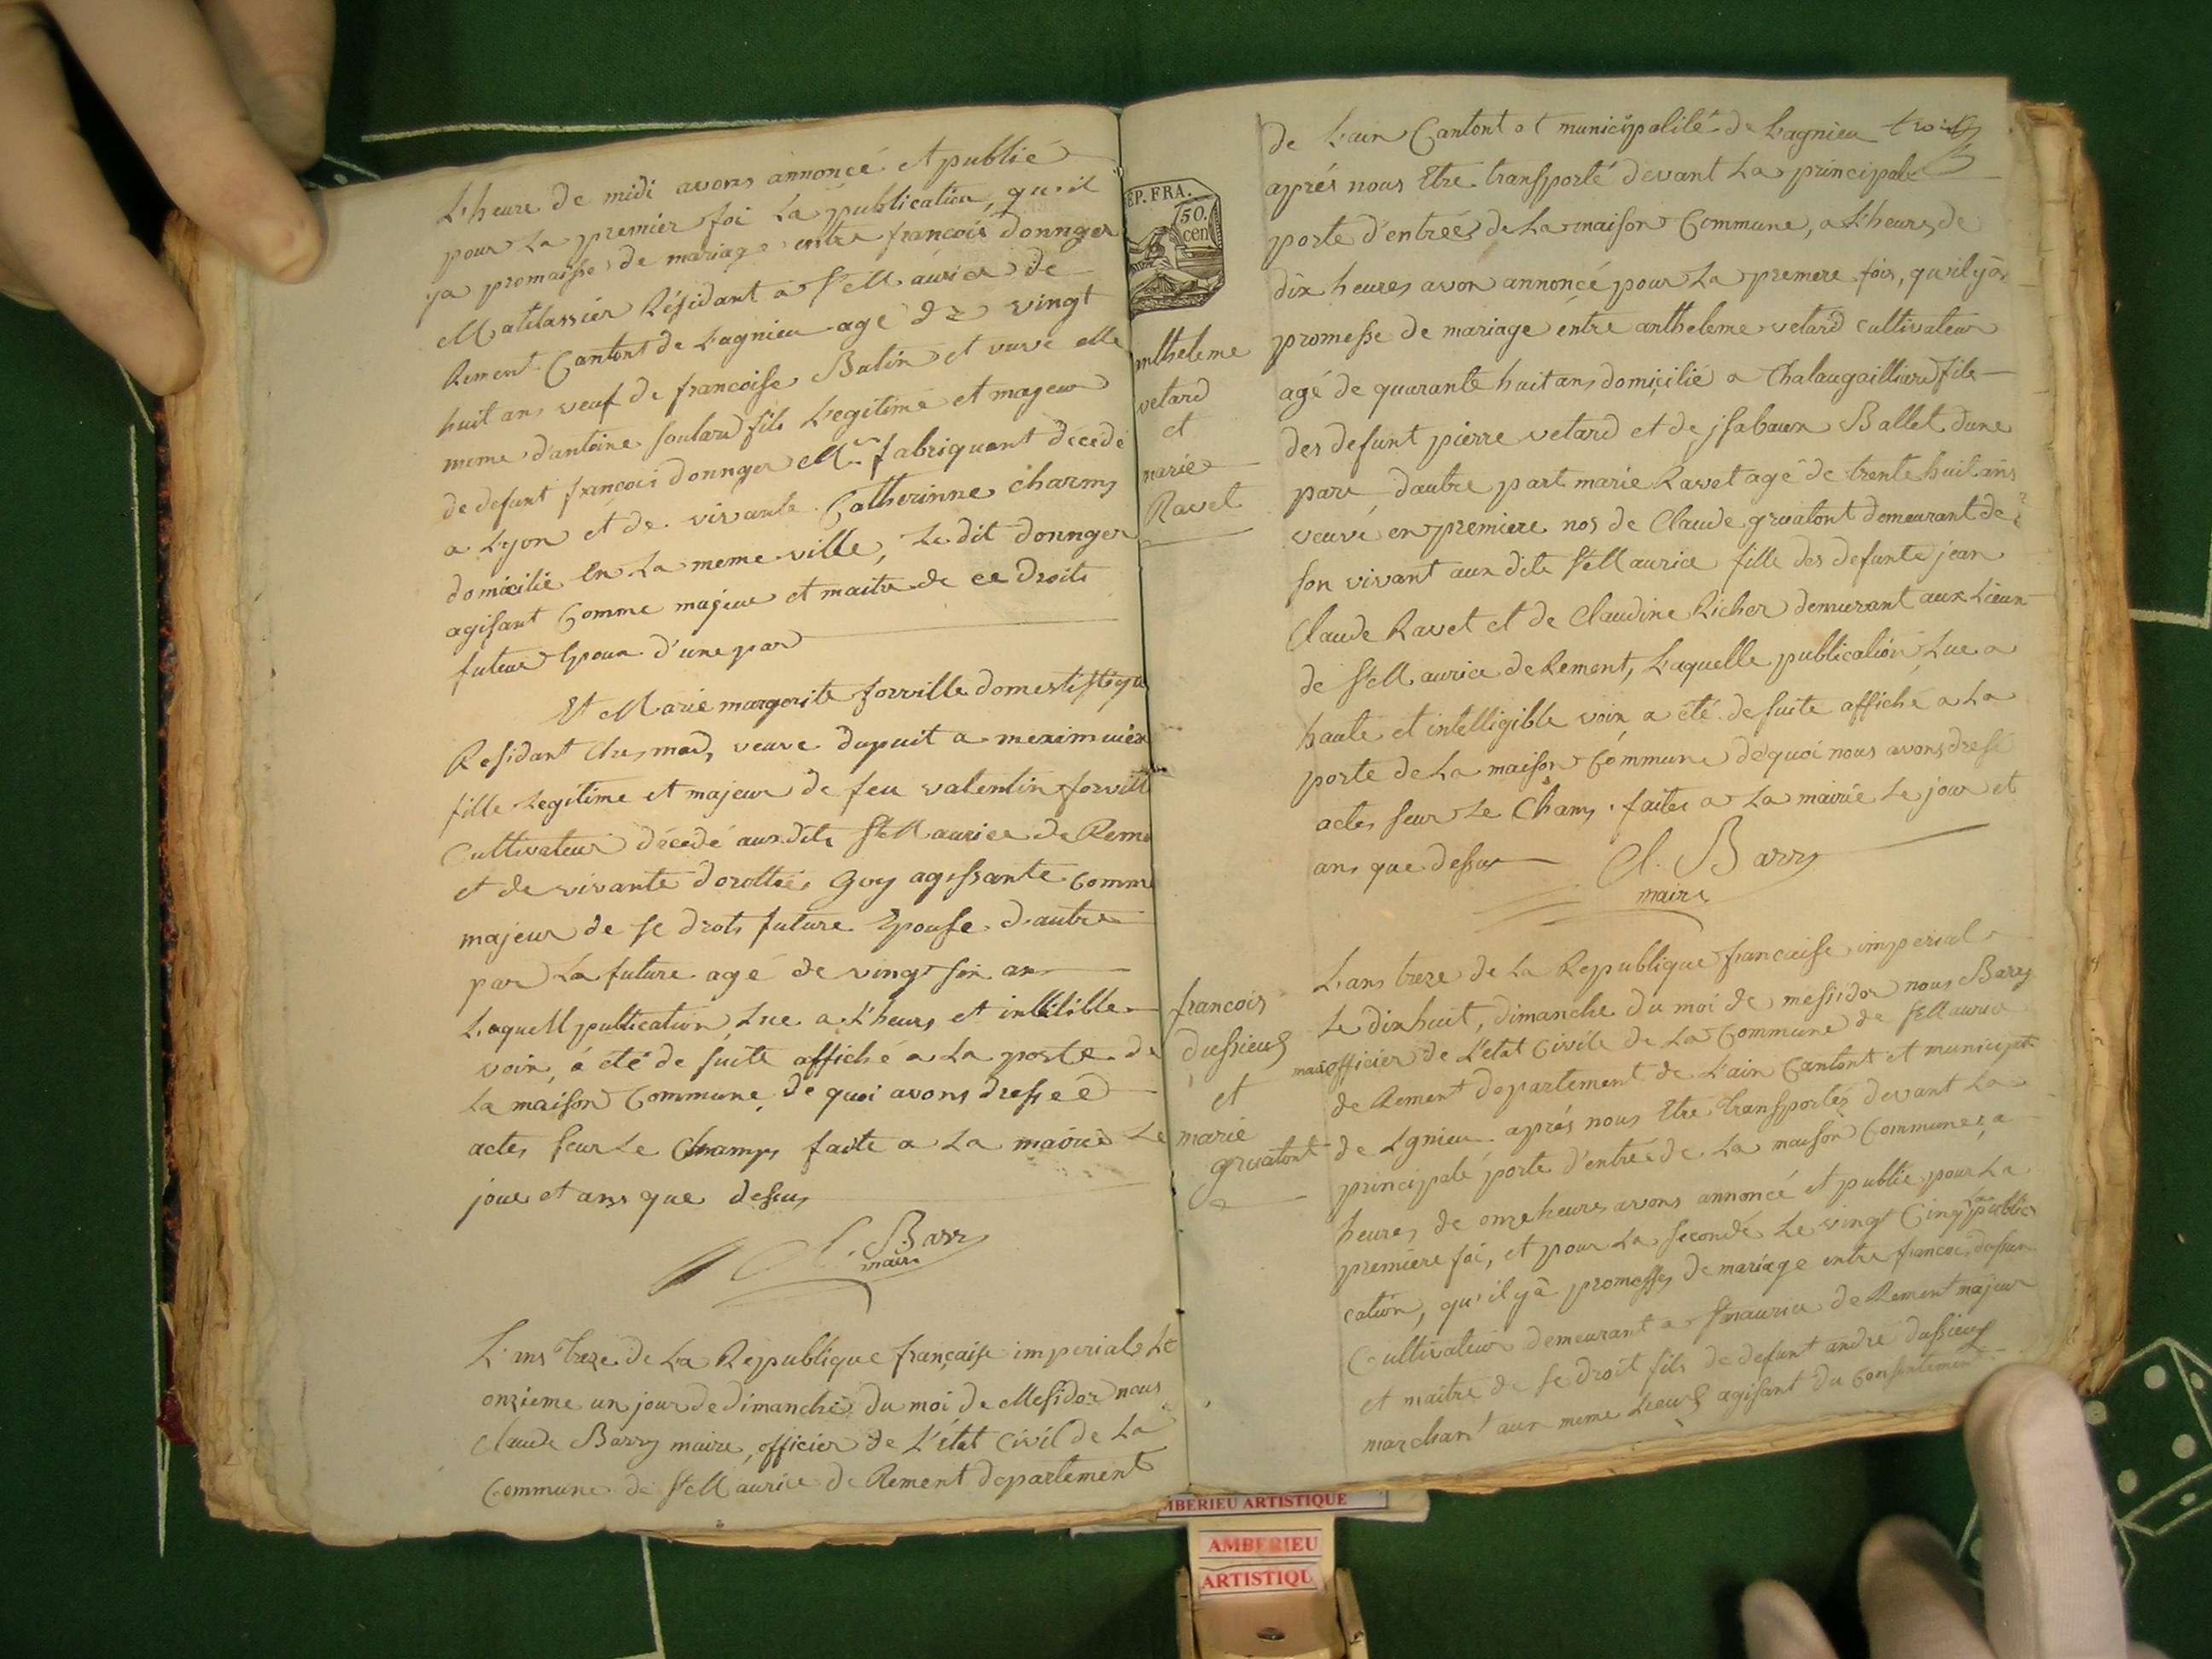 L'heure de midi avons annonçé et publié
pour La premier foi La publication, qu'il
ya promaisse de mariage entre francois donnger
Matelassier Résidant a St Maurice de
Rement Cantont de Lagnieu agé de vingt
huit ans veuf de francoise Butin et vuve elle
meme dantoine soulard fils Legitime et majeur
de defunt francois donnger Md fabriquant décédé
a Lyon et de vivante Catherinne charmy
domicilié En La meme ville, Le dit donnger
agisant Comme majeur et maitre de ce Droits
futeur Epoux d'une par
Et Marie margorite forville domestistique
Residant Chesmad, veuve dupuit a meximiuex
fille Legitime et majeur de feu valentin forvill
Cultivateur décédé aux dits St Maurice de Reme
et de vivante dorottée Guy agissante Comme
majeur de se drots future Epouse d'autre
par La future agé de vingt six an
Laquell publication Lue a L'heurs et intilible
voix, a été de suite affiché a La porte de
La maison Commune de quoi avons dressée
actes seur Le Champs faite a La mairie Le
jour et ans que dessus
Cl. Barry
maire
L'ans treze de La Republique française imperiale Le
onzieme un jour de dimanche du moi de Messidor nous
Claude Barry maire, officier de L'état Civil de La
Commune de St Maurice de Rement departement
REP. FRA.
50.
cen
antheleme
vetard
et
marie
Ravet
de L'ain Cantont et municipalité de Lagnieu
aprés nous Etre transporté devant La principale
porte d'entrée de La maison Commune, a L'heure de
dix heures avon annonçé pour La premere fois, qu'il ya
promesse de mariage entre antheleme vetard cultivateur
agé de quarante huit ans domiçilié a Chalaugailliard fils
des defunt pierre vetard et de jsabaux Ballet dune
pare, dautre part marie Ravet agé de trente huit ans
veuve en premiere nos de Claude gruatont demeurant de
son vivant aux dite St Maurice fille des defunte jean
Claude Ravet et de Claudine Richer demurant aux Lieux
de St Maurice de Rement, Laquelle publication Lue a
haute et intelligible voix a été de suite affiché a La
porte de La maison Commune de quoi nous avons dresé
actes seur Le Champ. faites a La mairie Le jour et
ans que dessus
Cl. Barry
maire
francois
dussieux
et
marie
gruatont
L'ans treze de La Republique francaise imperial
Le dix huit, dimanche du moi de messidor nous Barry
maire officier de L'état Civile de La Commune de St Maurice
de Rement departement de L'ain Cantont et municipt
de Lgnieu aprés nous Etre transportés devant La
principale porte d'entrée de La maison Commune, a
heures de onze heures avons annoncé et publié pour La
premiere foi, et pour La seconde Le vingt Cinq La publi
cation, qu'il ya promesses de mariage entre francoi dussieu
Cultivateur demeurant a St maurice de Rement majeur
et maitre de se droit fils de defunt andre dussieux
marchant aux meme Lieux agisant du Consentement
AMBERIEU ARTISTIQUE
AMBERIEU
ARTISTIQU